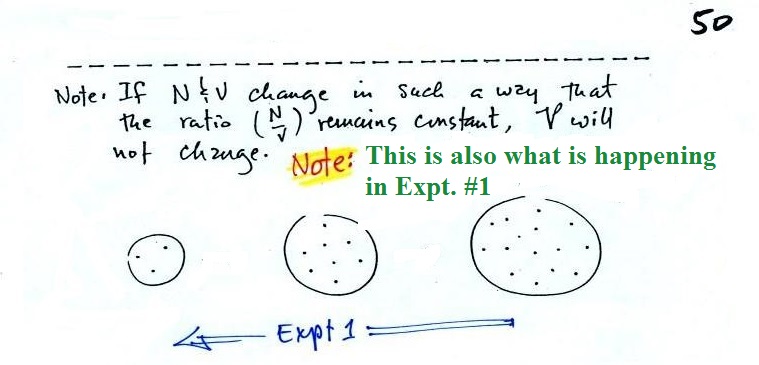 50
Note. If N & V change in such a way that
the ratio (N/V) remains constant, P will
not change. Note: This is also what is happening
in Expt. #1
Expt 1